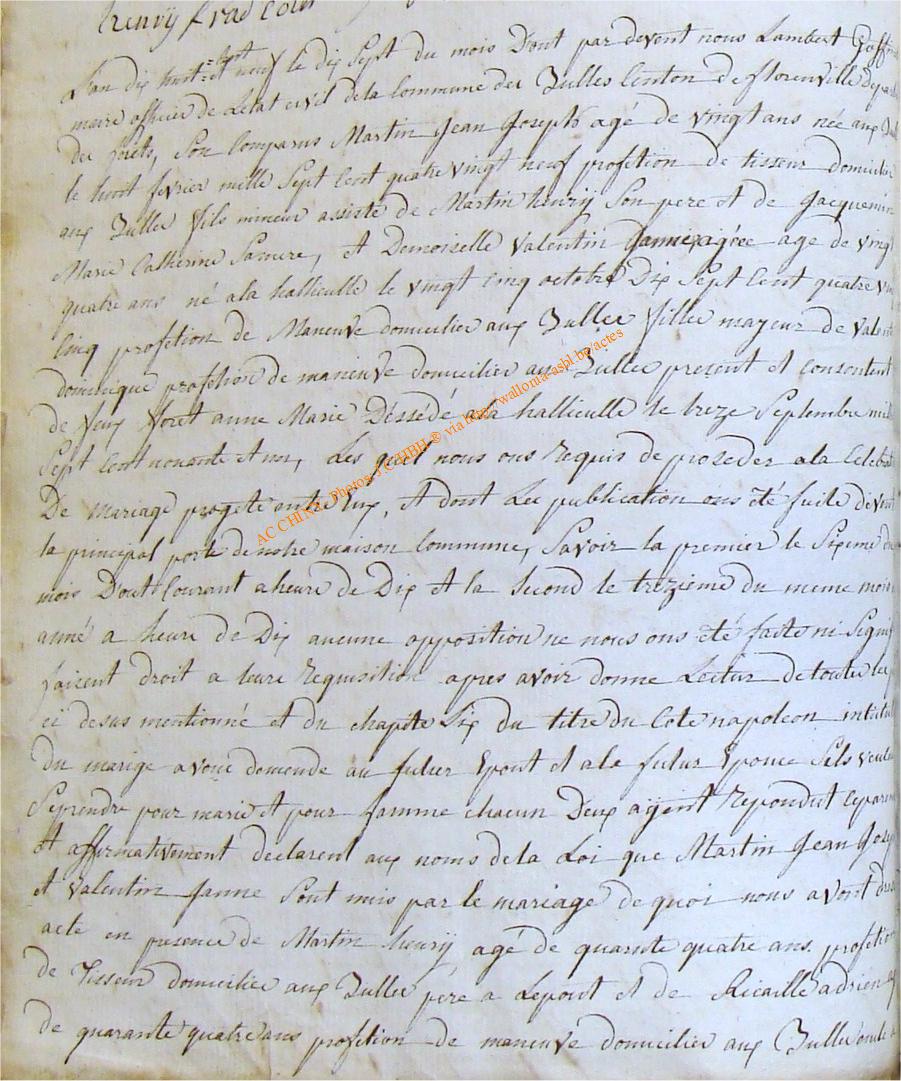 henrÿ
L'an dix huit cent neuf le dix Sept du mois Dout par devent nous Lambert
maire officier de Letat civil dela Commune des Bulles Canton de florenville depar
des forêts, Son Comparus Martin Jean Joseph agé de vingt ans née aux Bul
le huit fevrier mille Sept Cent quatre vingt neuf profetion de tisseur domicilier
aux Buller fils mineur assisté de Martin henrÿ Son pere et de Jacquemin
Marie Catherine Samere, et Demoiselle Valentin Janne age de vingt
quatre ans né ala hallieulle le vingt Cinq octobre Dix Sept Cent quatre vin
Cinq profetion de Maneuve domicilier aux Buller filler mayeur de valenti
dominique profetion de maneuve domicilier aux Buller present et consentent
de feux foret anne Marie Déssedé ala hallieulle le treze Septembre mil
Sept Cent nonante Ans, Les quel nous ons Requis de proseder ala Celebrati
De mariage progeté entre Eux, et dont Les publication ons été faite devent
la principal porte de notre maison Commune, Savoir la premier le Sixieme du
mois Dout Courant a heure de Dix et la Second le trezieme du meme mois
anné a heure de Dix aucunne opposition ne nous ons été faite ni Signif
faisent droit a leure Requisition apres avoir donne Lecture de toute les
ci desus mentionné et du chapite Six du titre du Cote napoleon intitul
du marige avoir demende au futur Epout et ala futur Epouce Sils veule
Seprendre pour marie et pour famme chacun Deux agent Repondut Ceparem
et affirmativement declarent aux noms dela Loi que Martin Jean Josep
et Valentin Janne Sont unis par le mariage de quoi nous avont dress
acte en presence de Martin henrÿ agé de quarante quatre ans profetion
de Tisseur domicilier aux Buller père a Lepout et de Ricaille adrien
de quarante quatre ans profetion de maneuve domicilier aux Buller oncle
AC CHINY Photos J CHIBH © via http://wallonia-asbl.be/actes